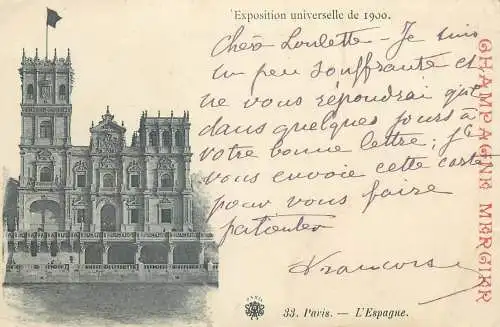 Exposition universelle de 1900.
Chère Loulette - Je suis
un peu souffrante et
ne vous répondrai que
dans quelques jours à
votre bonne lettre; je
vous envoie cette carte
pour vous faire
patienter
CHAMPAGNE MERCIER
PARIS
33. Paris. — L'Espagne.